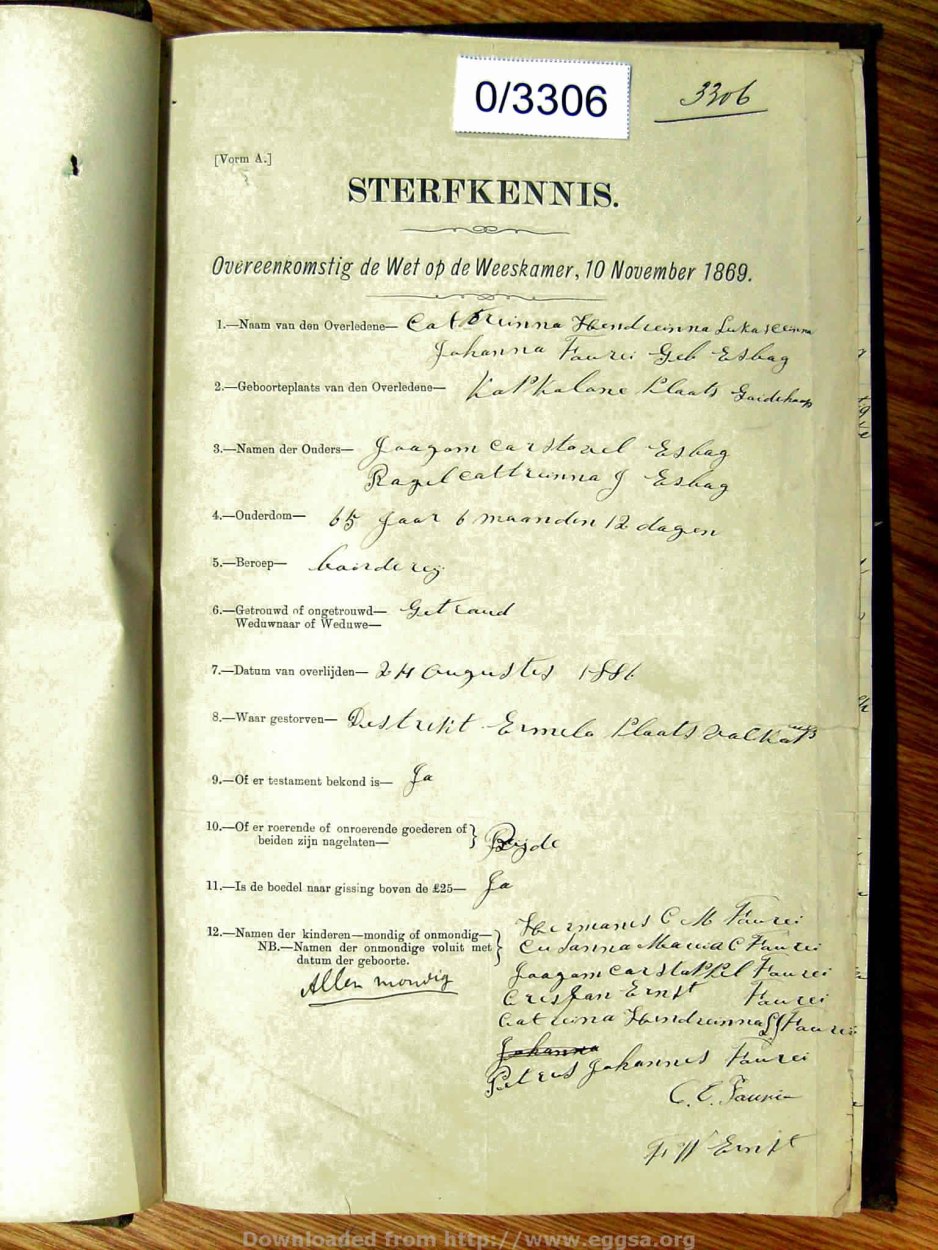 0/3306
3306
[Vorm A.]
STERFKENNIS.
Overeenkomstig de Wet op de Weeskamer, 10 November 1869.
1.—Naam van den Overledene— Cattrinna Hendreinna
Johanna Faurei Geb Esbag
2.—Geboorteplaats van den Overledene— Plaats
3.—Namen der Ouders— Jaagom Carstoael Esbag
Ragel cattrinna J Esbag
4.—Ouderdom— 65 Jaar 6 maanden 12 dagen
5.—Beroep—
6.—Getrouwd of ongetrouwd— Getraud
Weduwnaar of Weduwe—
7.—Datum van overlijden— 24 augustus 1886
8.—Waar gestorven— Destrikt Ermelo Plaats
9.—Of er testament bekond is— Ja
10.—Of er roerende of onroerende goederen of
beiden zijn nagelaten— Beijde
11.—Is de boedel naar gissing boven de £25— Ja
12.—Namen der kinderen—mondig of onmondig—
NB.—Namen der onmondige voluit met
datum der geboorte.
Allen mondig
Hermanus C M Faurei
Cusanna Maria C Faurei
Jaagom Carstoffel Faurei
Cresjan Ernst Faurei
Catreina Hendreinna Faurei
Johanna
Petrus Johannes Faurei
C. E. Faurie
Ernst
Downloaded from http://www.eggsa.org